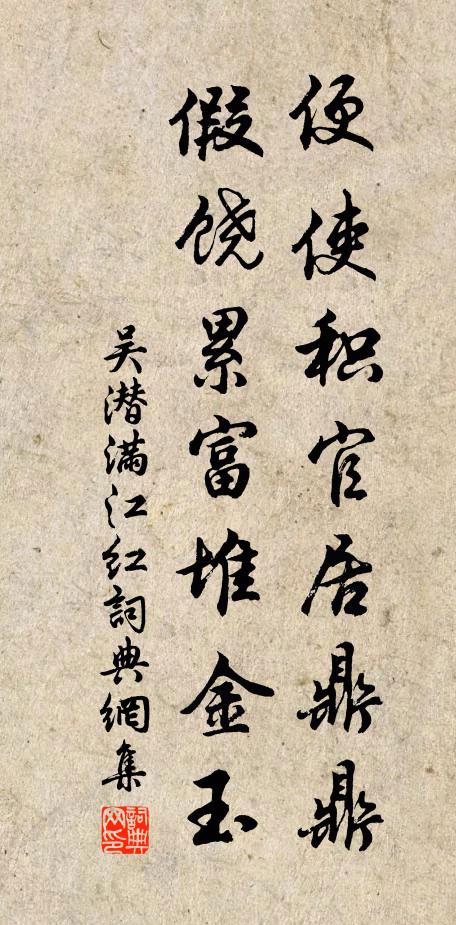 便使积官居鼎鼎
假饶累富堆金玉
吴潜满江红詞典網集
詞典网印